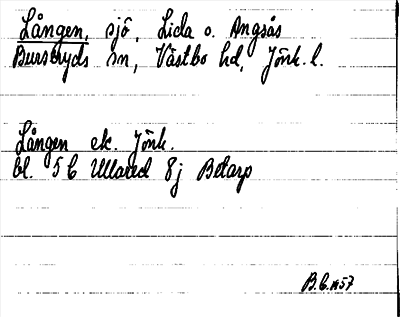 Lången, sjö, Lida o. Angsås
Burseryds sn, Västbo hd, Jönk. l.
Lången ek. Jönk.
bl. 5 C Ullared 8j Botarp
1957